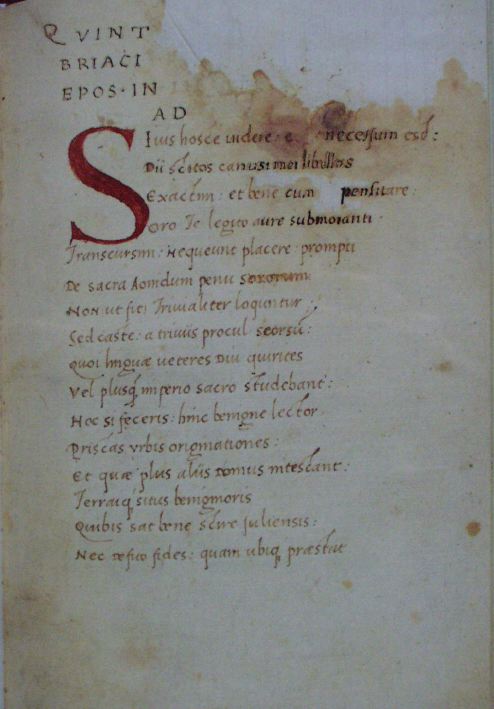 QVINT
BRIACI
EPOS·IN
AD
SIuis hosce uidere · e necessum est :
Dii scitos canusi mei libellos
Exactim : et bene cum pensitare :
oro Te legito aure submouanti ·
Transcursim : Nequeunt placere prompti
De sacra Aonidum penu sororum
Non ut fit : Triuialiter loquntur ;
Sed caste : a triuiis procul seorsū :
Quoi linguæ ueteres Diu quirites
Vel plusq̃ imperio sacro studebant :
Hoc si feceris : hinc benigne lector
Priscas vrbis originationes :
Et quæ plus aliis Domus nitescant :
Terraiq; situs benignioris
Quibis sat bene scire Juliensis :
Nec fides : quam ubiq; præstat